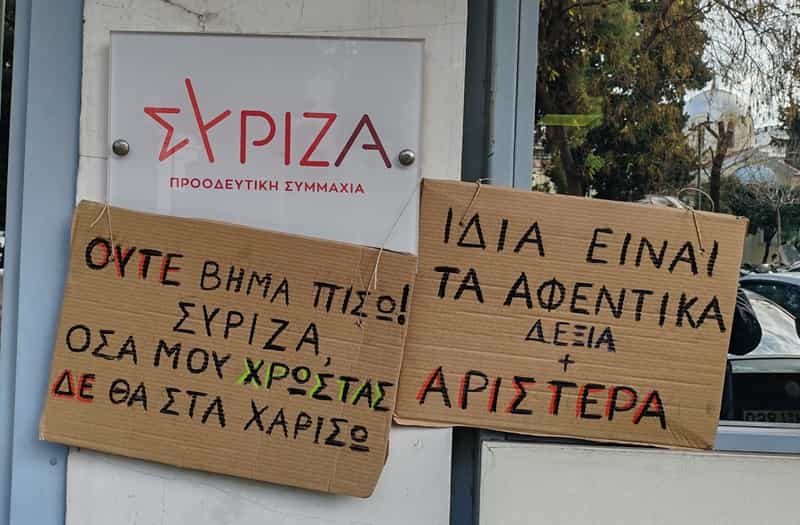 ΣΥΡΙΖΑ
ΠΡΟΟΔΕΥΤΙΚΗ ΣΥΜΜΑΧΙΑ
ΟΥΤΕ ΒΗΜΑ ΠΙΣΩ!
ΣΥΡΙΖΑ,
ΟΣΑ ΜΟΥ ΧΡΩΣΤΑΣ
ΔΕ ΘΑ ΣΤΑ ΧΑΡΙΣΩ
ΙΔΙΑ ΕΙΝΑΙ
ΤΑ ΑΦΕΝΤΙΚΑ
ΔΕΞΙΑ
+
ΑΡΙΣΤΕΡΑ